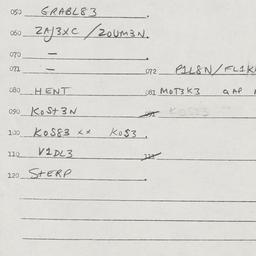 050 GRABL83
060 ZAJ3XC / ZOUM3N.
070 —
071 — 072 P1L8N/FL1K
080 HENT 081 MOT3K3 GAP
090 KOST3N 091
100 KOS83 xx KOS3
110 V1DL3 111
120 STERP